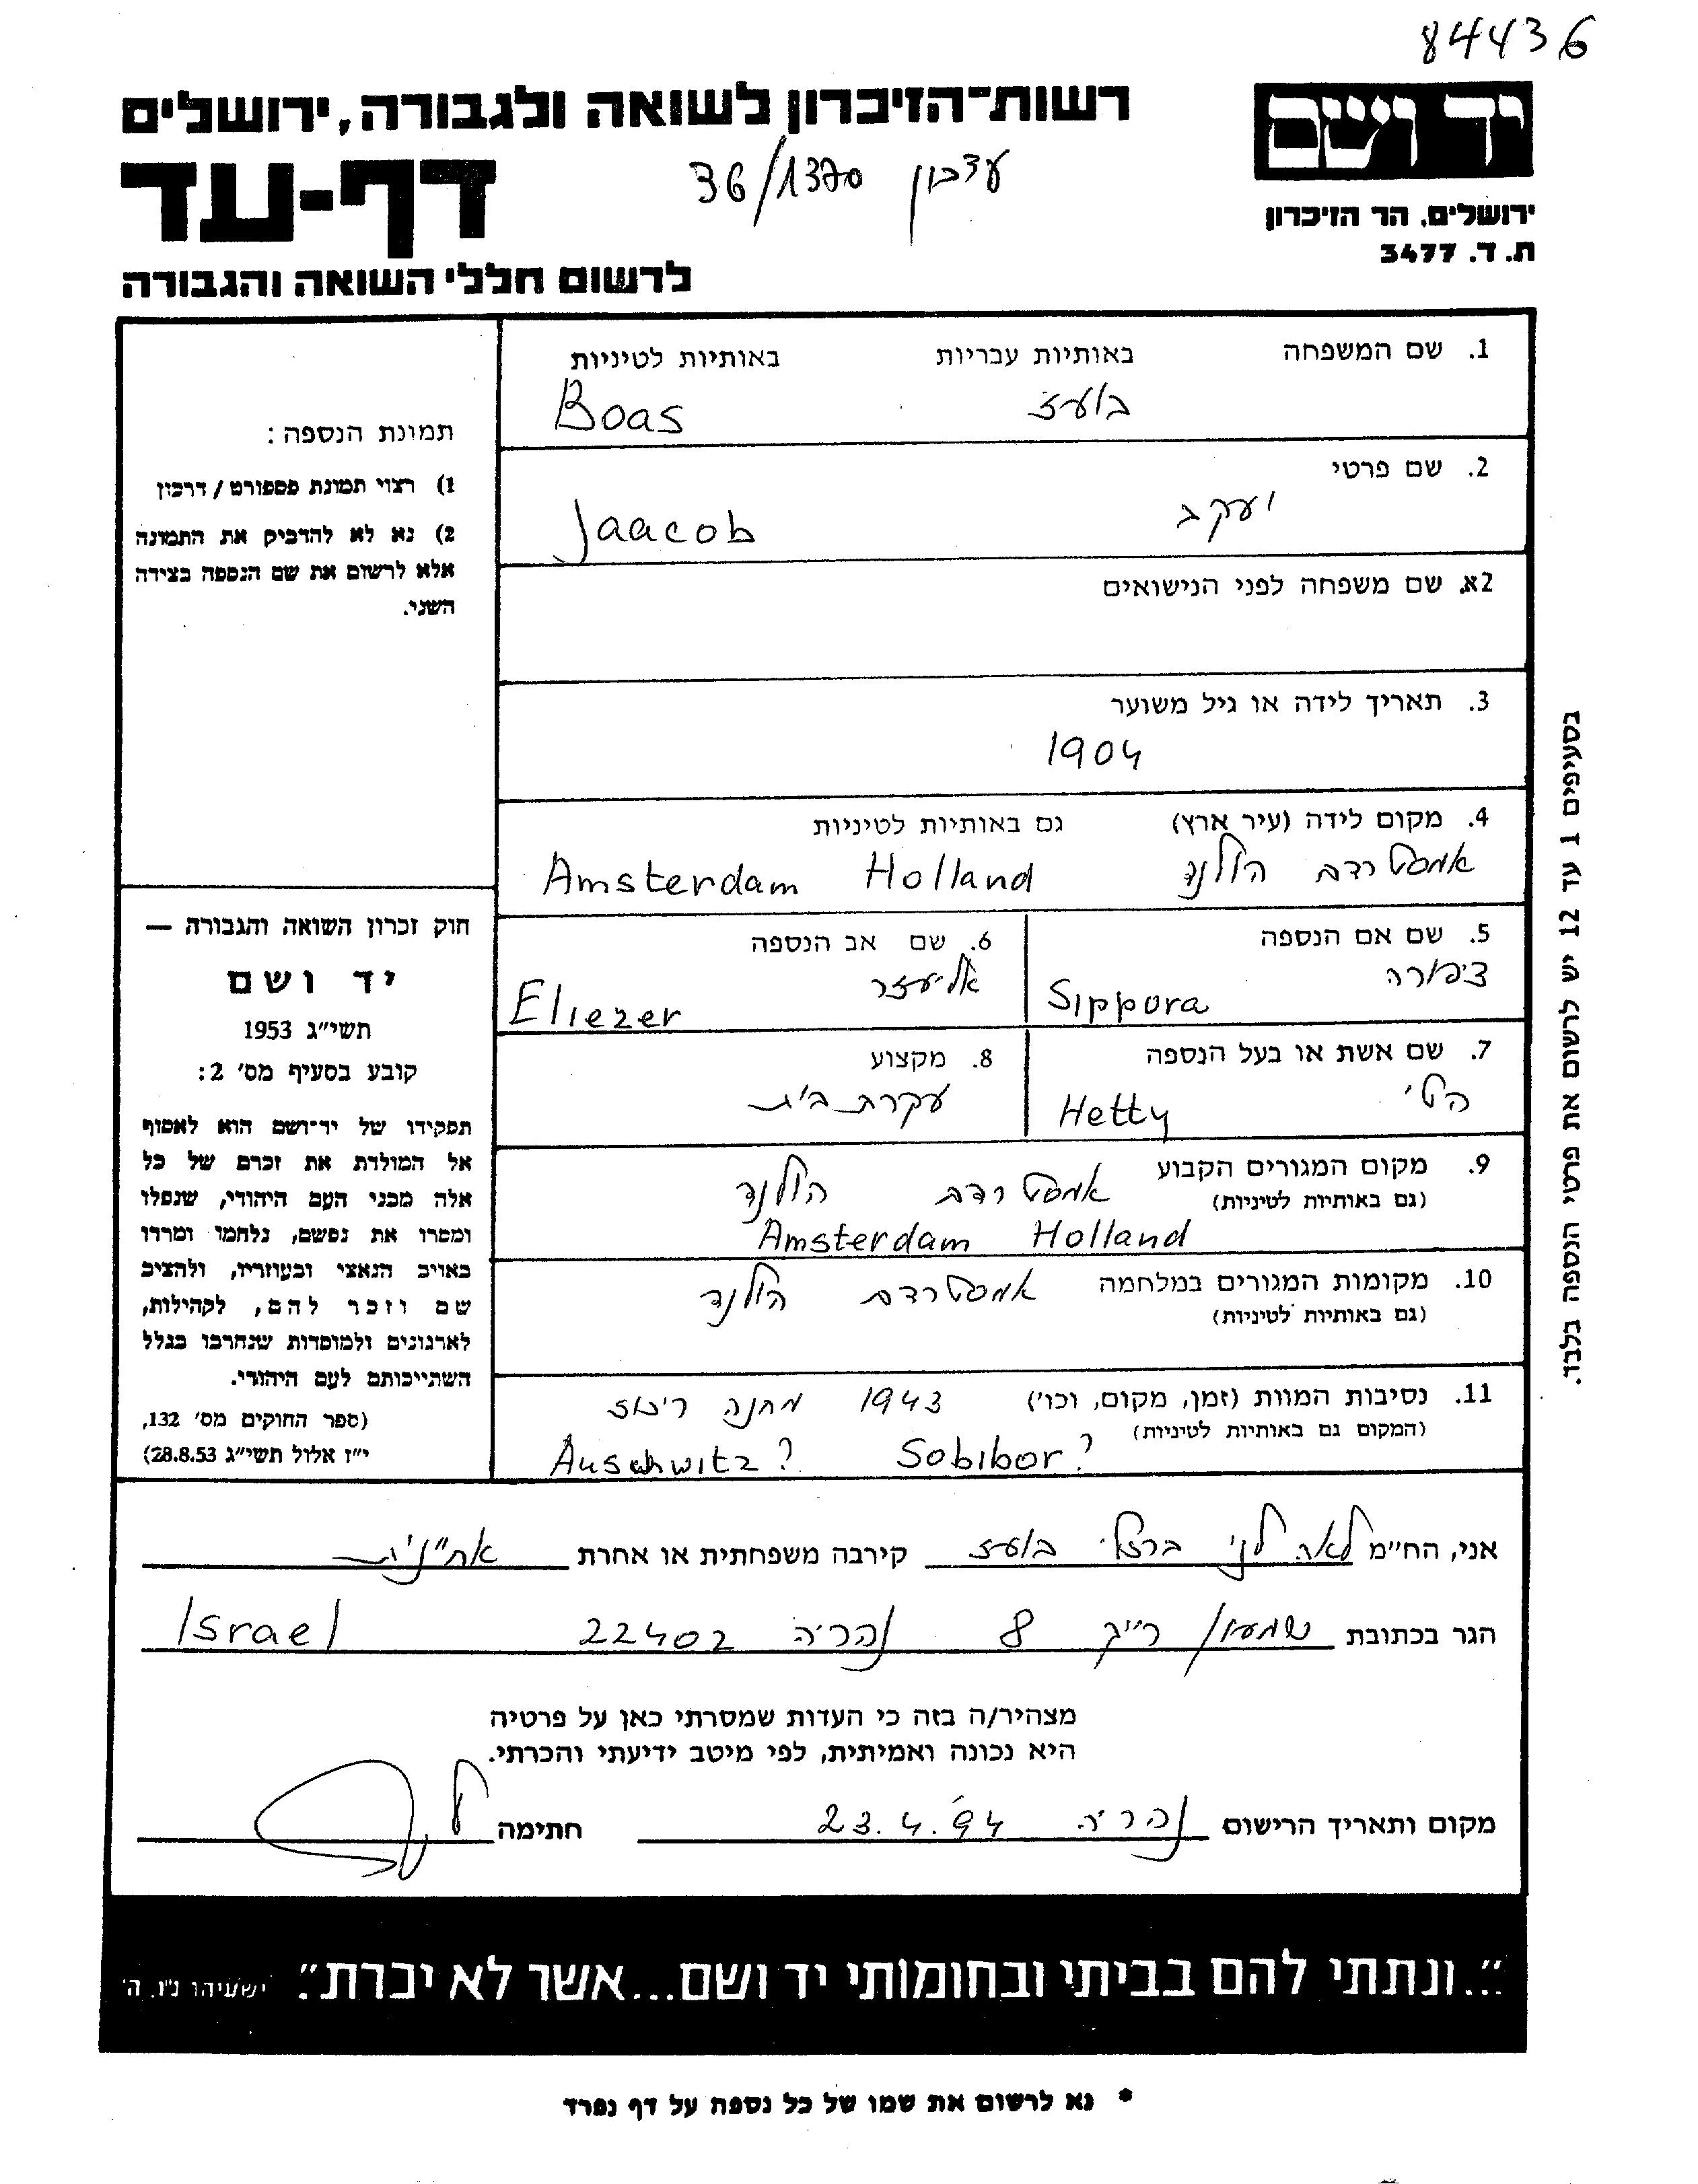 84436
רשות־הזיכרון לשואה ולגבורה, ירושלים
יד ושם
דף-עד
36/1370
ירושלים, הר הזיכרון
ת. ד. 3477
לרשום חללי השואה והגבורה
1. שם המשפחה באותיות עבריות באותיות לטיניות
בועז Boas
2. שם פרטי
יעקב Jaacob
2א. שם משפחה לפני הנישואים
3. תאריך לידה או גיל משוער
1904
4. מקום לידה (עיר ארץ) גם באותיות לטיניות
אמסטרדם הולנד Amsterdam Holland
5. שם אם הנספה
ציפורה
Sippora
6. שם אב הנספה
אליעזר
Eliezer
7. שם אשת או בעל הנספה
הטי
Hetty
8. מקצוע
עקרת בית
9. מקום המגורים הקבוע אמסטרדם הולנד
(גם באותיות לטיניות)
Amsterdam Holland
10. מקומות המגורים במלחמה אמסטרדם הולנד
(גם באותיות לטיניות)
11. נסיבות המוות (זמן, מקום, וכו') 1943 מחנה ריכוז
(המקום גם באותיות לטיניות)
Auschwitz? Sobibor?
תמונת הנספה:
1) רצוי תמונת פספורט / דרכון
2) נא לא להדביק את התמונה
אלא לרשום את שם הנספה בצידה
השני.
חוק זכרון השואה והגבורה —
יד ושם
תשי"ג 1953
קובע בסעיף מס' 2:
תפקידו של יד־ושם הוא לאסוף
אל המולדת את זכרם של כל
אלה מבני העם היהודי, שנפלו
ומסרו את נפשם, נלחמו ומרדו
באויב הנאצי ובעוזריו, ולהציב
שם וזכר להם, לקהילות,
לארגונים ולמוסדות שנחרבו בגלל
השתייכותם לעם היהודי.
(ספר החוקים מס' 132,
י"ז אלול תשי"ג 28.8.53)
בסעיפים 1 עד 12 יש לרשום את פרטי הנספה בלבד.
אני, הח"מ לאה לני ברזלי בועז קירבה משפחתית או אחרת אחינית
הגר בכתובת שמעון רייך 8 נהריה 22402 Israel
מצהיר/ה בזה כי העדות שמסרתי כאן על פרטיה
היא נכונה ואמיתית, לפי מיטב ידיעתי והכרתי.
מקום ותאריך הרישום נהריה 23.4.94 חתימה
"...ונתתי להם בביתי ובחומותי יד ושם...אשר לא יכרת". ישעיהו נ"ו, ה'
* נא לרשום את שמו של כל נספה על דף נפרד